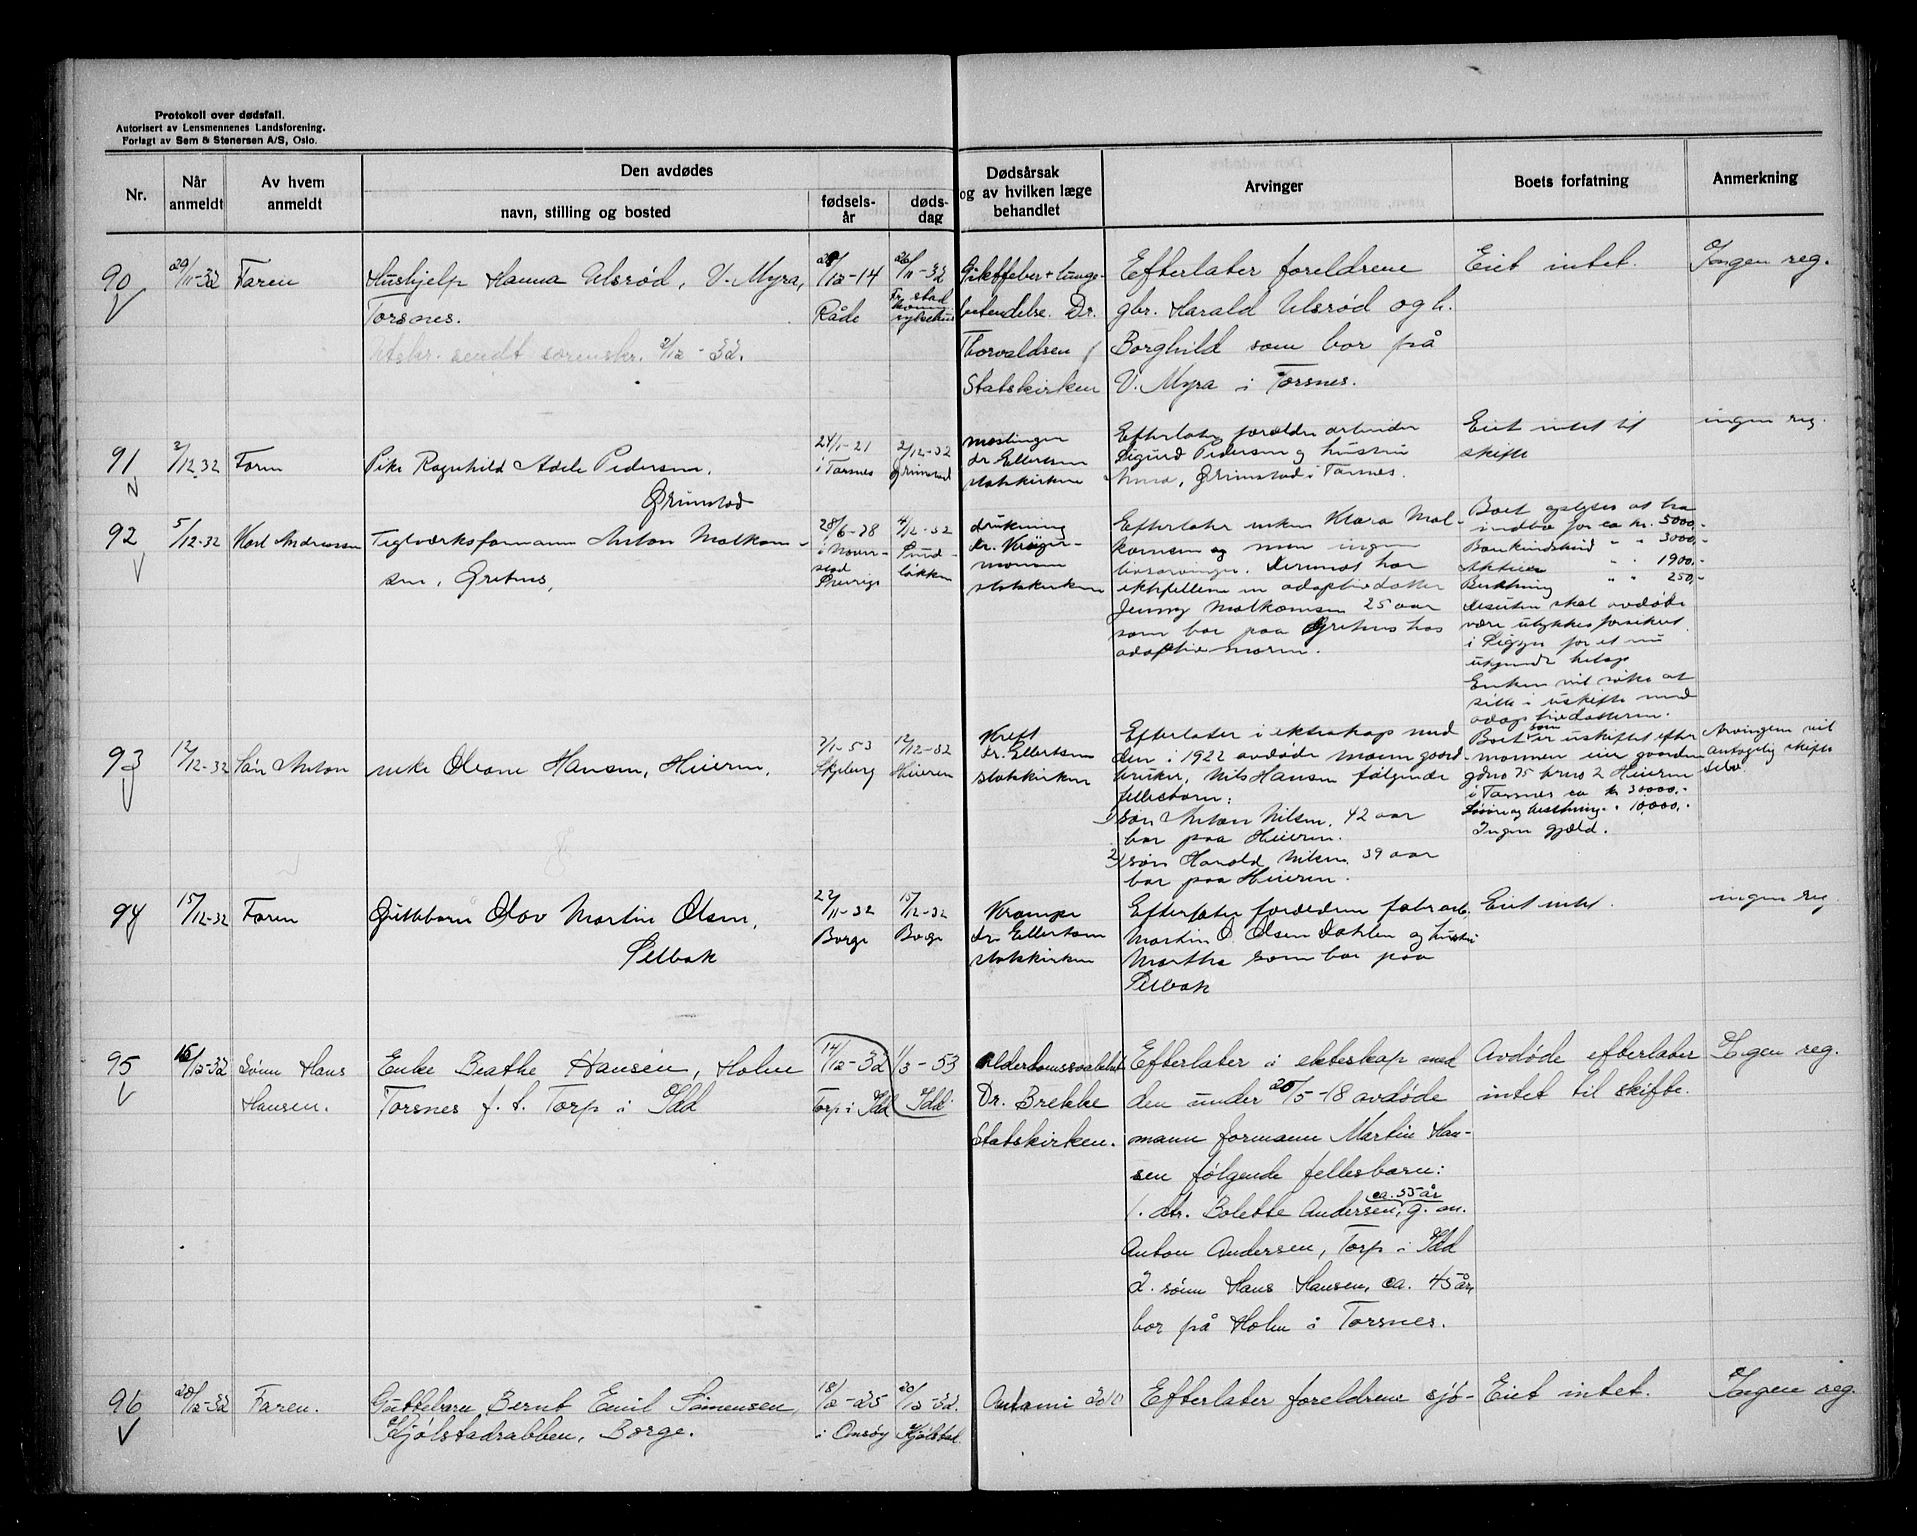 Protokoll over dødsfall.
Autorisert av Lensmennenes Landsforening.
Forlagt av Sem & Stenersen A/S, Oslo.
Nr.
Når anmeldt
Av hvem anmeldt
Den avdødes
navn, stilling og bosted
fødsels-år
døds-dag
Dødsårsak og av hvilken læge behandlet
Arvinger
Boets forfatning
Anmerkning
90
29/11-32
Faren
Hushjelp Hanna Ulsrød, V. Myra,
Torsnes.
Utskr. sendt sorenskr. 2/12-32.
/12-14
Råde
26/11-32
Fr.stad
sykehus
Giktfeber + lunge-
betendelse. Dr.
Thorvaldsen
Statskirken
Efterlater foreldrene
gbr. Harald Ulsrød og h.
Borghild som bor på
V. Myra i Torsnes.
Eiet intet.
Ingen reg.
91
2/12 32
Faren
Pike Ragnhild Adele Pedersen,
Grimstad
24/1-21
i Torsnes
2/12-32
Grimstad
meslinger
dr. Ellertsen
statskirken
Efterlater forældre arbeider
Sigurd Pedersen og hustru
Anna, Grimstad i Torsnes.
Eiet intet til
skifte
ingen reg.
92
5/12-32
Karl Andreassen
Teglverksformann Anton Malkom-
sen, Gretnes,
28/6-78
Sverige
4/12-32
Sund-
løkken
drukning
dr. Krüger-
statskirken
Efterlater enken Klara Mal-
komsen og men ingen
livsarvinger. Derimot har
ektefellene en adoptivdatter
Jenny Malkomsen 25 aar
som bor paa Gretnes hos
adoptivmoren.
Boet oplyses at ha
indbo for ca kr. 5000,-
Bankindskud " " 3000,-
Aktier " " 1900,-
Besetning " " 250,-
Desuten skal avdøde
være ulykkesforsikret
i Sigyn for et nu
ukjendt beløp
Enken vil søke at
sitte i uskifte med
adoptivdatteren.
93
12/12-32
Søn Anton
enke Oleane Hansen, Heieren,
2/1-53
Skjeberg
12/12-32
Heieren
Kreft
dr. Ellertsen
statskirken
Efterlater i ekteskap med
den i 1922 avdøde mann gaard-
bruker, Nils Hansen følgende
fellesbarn:
1 søn Anton Nilsen, 42 aar
bor paa Heieren.
2 søn Harald Nilsen, 39 aar
bor paa Heieren.
Boet som er uskiftet efter
mannen eier gaarden
gdno 75 brno 2 Heieren
i Torsnes ca kr 30000,-
Løsøre og besetning " 10,000,-
Ingen gjæld.
Arvingene vil
antagelig skifte
selv.
94
15/12-32
Faren
Guttebarn Olav Martin Olsen,
Selbak
22/11-32
Borge
15/12-32
Borge
Krampe
Dr. Ellertsen
statskirken
Efterlater foreldrene fabr.arb.
Martin O. Olsen Dahlen og hustru
Martha som bor paa
Selbak
Eiet intet.
ingen reg
95
16/12-32
Sønn Hans
Hansen.
Enke Beathe Hansen, Holm
Torsnes f. t. Torp i Idd
14/12-32
Torp i Idd
1/3-53
Idd
Alderdomssvakhet
Dr. Brekke
Statskirken.
Efterlater i ekteskap med
den under 20/5-18 avdøde
mann formann Martin Han-
sen følgende fellesbarn:
ca. 55 år
1. dtr. Bolette Andersen, g. m.
Anton Andersen, Torp i Idd
2. sønn Hans Hansen, ca. 45 år,
bor på Holm i Torsnes.
Avdøde efterlater
intet til skifte.
Ingen reg.
96
20/12-32
Faren.
Guttebarn Bernt Emil Simensen,
Kjølstadrabben, Borge.
18/2-25
i Onsøy
20/12-32.
Kjølstad.
Efterlater foreldrene sjø-
Eiet intet.
Ingen reg.